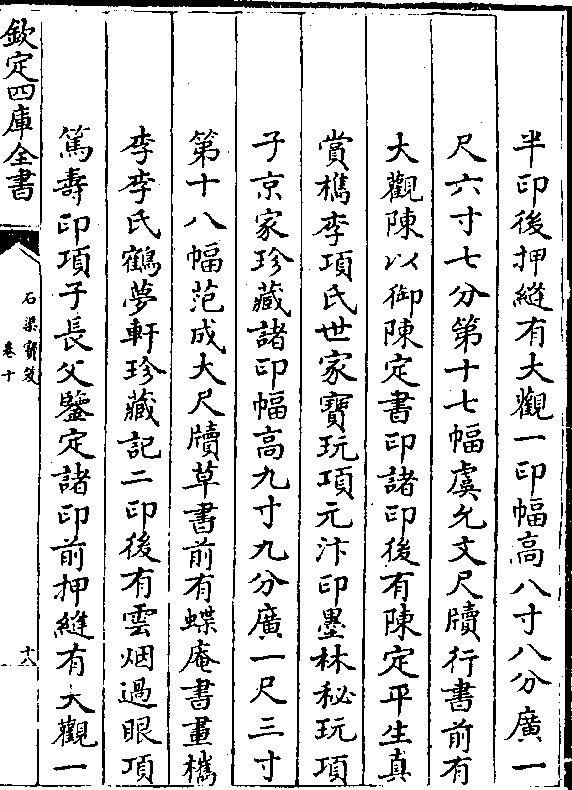 半印後押縫有大觀一印幅高八寸八分廣一
尺六寸七分第十七幅虞允文尺牘行書前有
大觀陳以御陳定書印諸印後有陳定平生真
賞檇李項氏世家寶玩項元汴印墨林秘玩項
子京家珍藏諸印幅高九寸九分廣一尺三寸
第十八幅范成大尺牘草書前有蝶庵書畫檇
李李氏鶴夢軒珍藏記二印後有雲烟過眼項
篤壽印項子長父鑒定諸印前押縫有大觀一
欽定四庫全書
石渠寶笈
卷十
十八